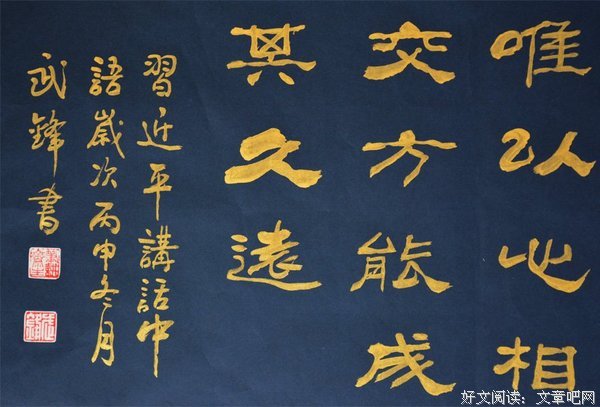 唯以心相
交方能成
其久遠
習近平講話中
語歲次丙申冬月
武鋒書
好文阅读：文章吧网